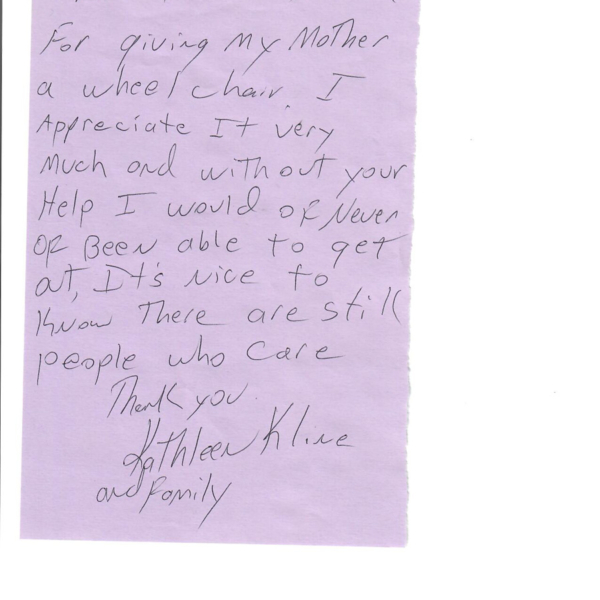 For giving my Mother
a wheel chair. I
Appreciate It very
Much and without your
Help I would of Never
OF Been able to get
out, It's nice to
Know There are still
people who care
Thank you.
Kathleen Kline
and family